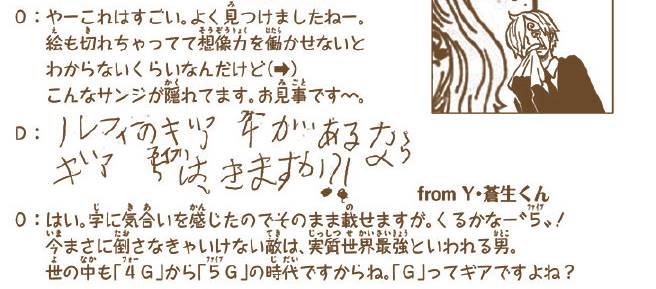 O：やーこれはすごい。よく見つけましたねー。
絵も切れちゃってて想像力を働かせないと
わからないくらいなんだけど(➡)
こんなサンジが隠れてます。お見事です〜。
D：ルフィのギア 4があるなら
ギア 5は、きますか?!
from Y・蒼生くん
O：はい。字に気合いを感じたのでそのまま載せますが。くるかなー〝5〟!
今まさに倒さなきゃいけない敵は、実質世界最強といわれる男。
世の中も「4G」から「5G」の時代ですからね。「G」ってギアですよね？